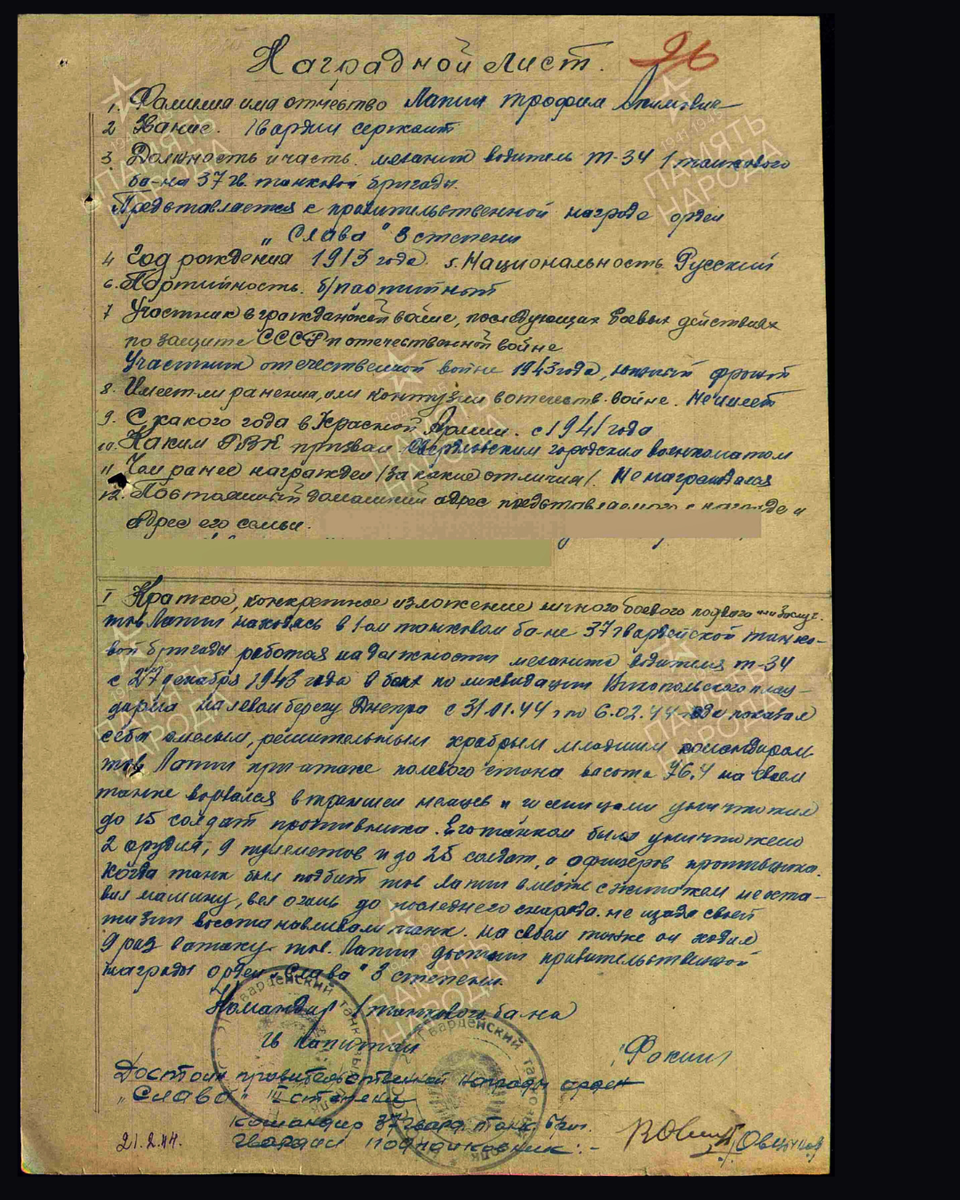 Наградной Лист. 26
1. Фамилия имя отчество Лапин Трофим
2 Звание. Гвардии сержант
3 Должность и часть. механик водитель Т-34 1 танкового
ба-на 37 гв. танковой бригады.
Представляется к правительственной награде орден
„Слава" 3 степени
4 Год рождения 1913 года 5. Национальность Русский
6. Партийность. б/партийный
7 Участник в гражданской войне, последующих боевых действиях
по защите СССР и отечественной войне
Участник отечественной войны 1943 года, южный фронт
8. Имеет ли ранения, или контузии в отечеств. войне. Не имеет
9. С какого года в Красной Армии. с 1941 года
10. Каким РВК призван городским военкоматом
11 Чем ранее награжден /за какие отличия/. Не награждался
12. Постоянный домашний адрес представляемого к награде и
Адрес его семьи.
I Краткое, конкретное изложение личного боевого подвига или заслуг
тов Лапин находясь в 1-ом танковом ба-не 37 гвардейской танко-
вой бригады работая на должности механика водителя Т-34
с 27 декабря 1943 года в боях по ликвидации Никопольского плац-
дарма на левом берегу Днепра с 31.01.44 г по 6.02.44 года показал
себя смелым, решительным храбрым младшим командиром
тов Лапин при атаке полевого стана высота 76.4 на своем
танке ворвался в траншеи немцев и гусеницами уничтожил
до 15 солдат противника. Его танком было уничтожено
2 орудия, 9 пулеметов и до 25 солдат, и офицеров противника.
Когда танк был подбит тов Лапин вместе с экипажем не оста-
вил машину, вел огонь до последнего снаряда. не щадя своей
жизни восстанавливал танк. на своем танке он ходил
9 раз в атаку. тов. Лапин достоин правительственной
награды орден „Слава" 3 степени.
Командир 1 танкового ба-на
гв капитан /Фокин/
Достоин правительственной награды орден
„Слава" III степени
Командир 37 гвард. танк. бриг.
Гвардии подполковник:-
21.2.44.
ПАМЯТЬ
НАРОДА
1941-1945